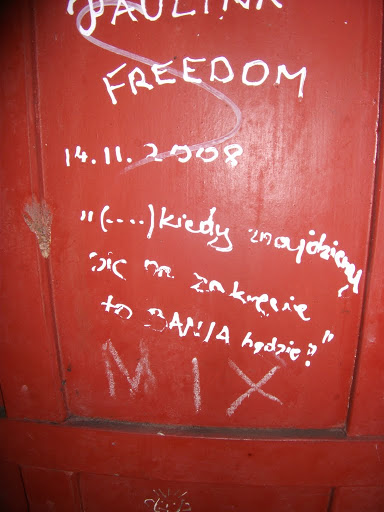 PAULINA
FREEDOM
14.11.2008
"(....) kiedy znajdziemy
się na zakręcie
to BANIA będzie?"
MIX